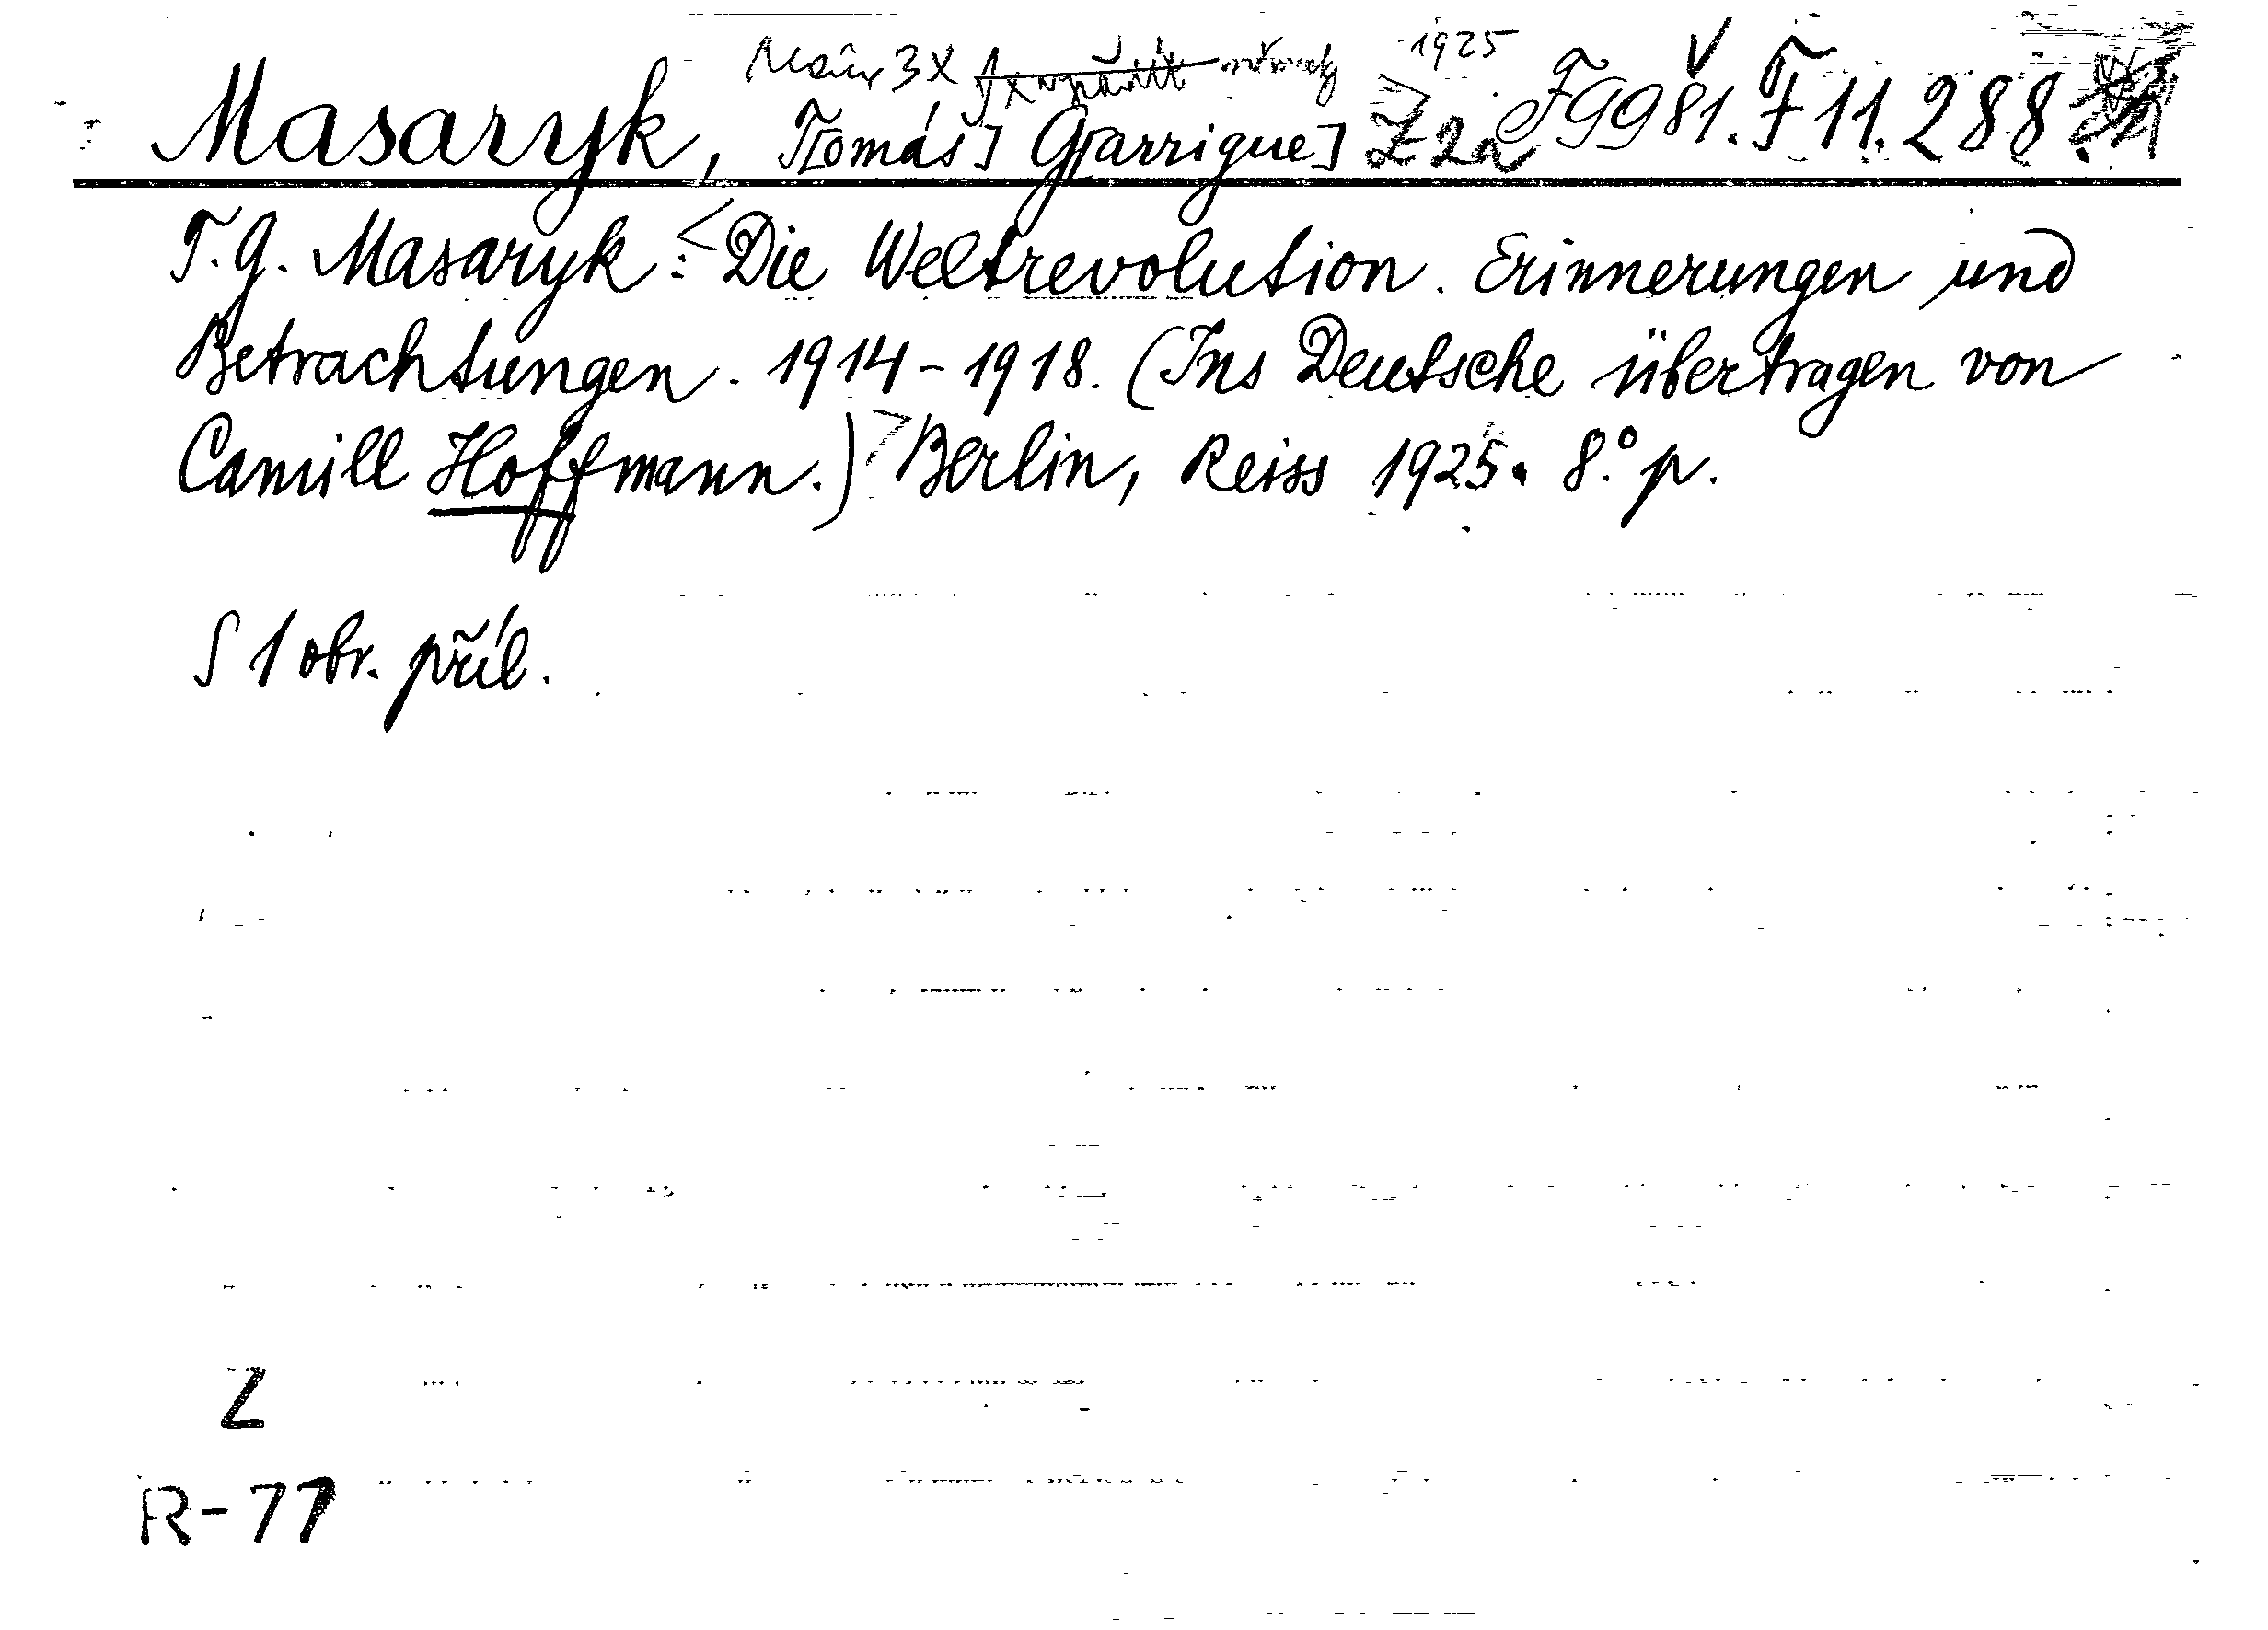 3x 1925
Masaryk, T[omáš] G[arrigue] Z2a F 9981. F 11.288
T. G. Masaryk: <Die Weltrevolution. Erinnerungen und
Betrachtungen. 1914-1918. (Ins Deutsche übertragen von
Camill Hoffmann.)> Berlin, Reiss 1925. 8.° p.
S 1 obr. příl.
Z
R-77